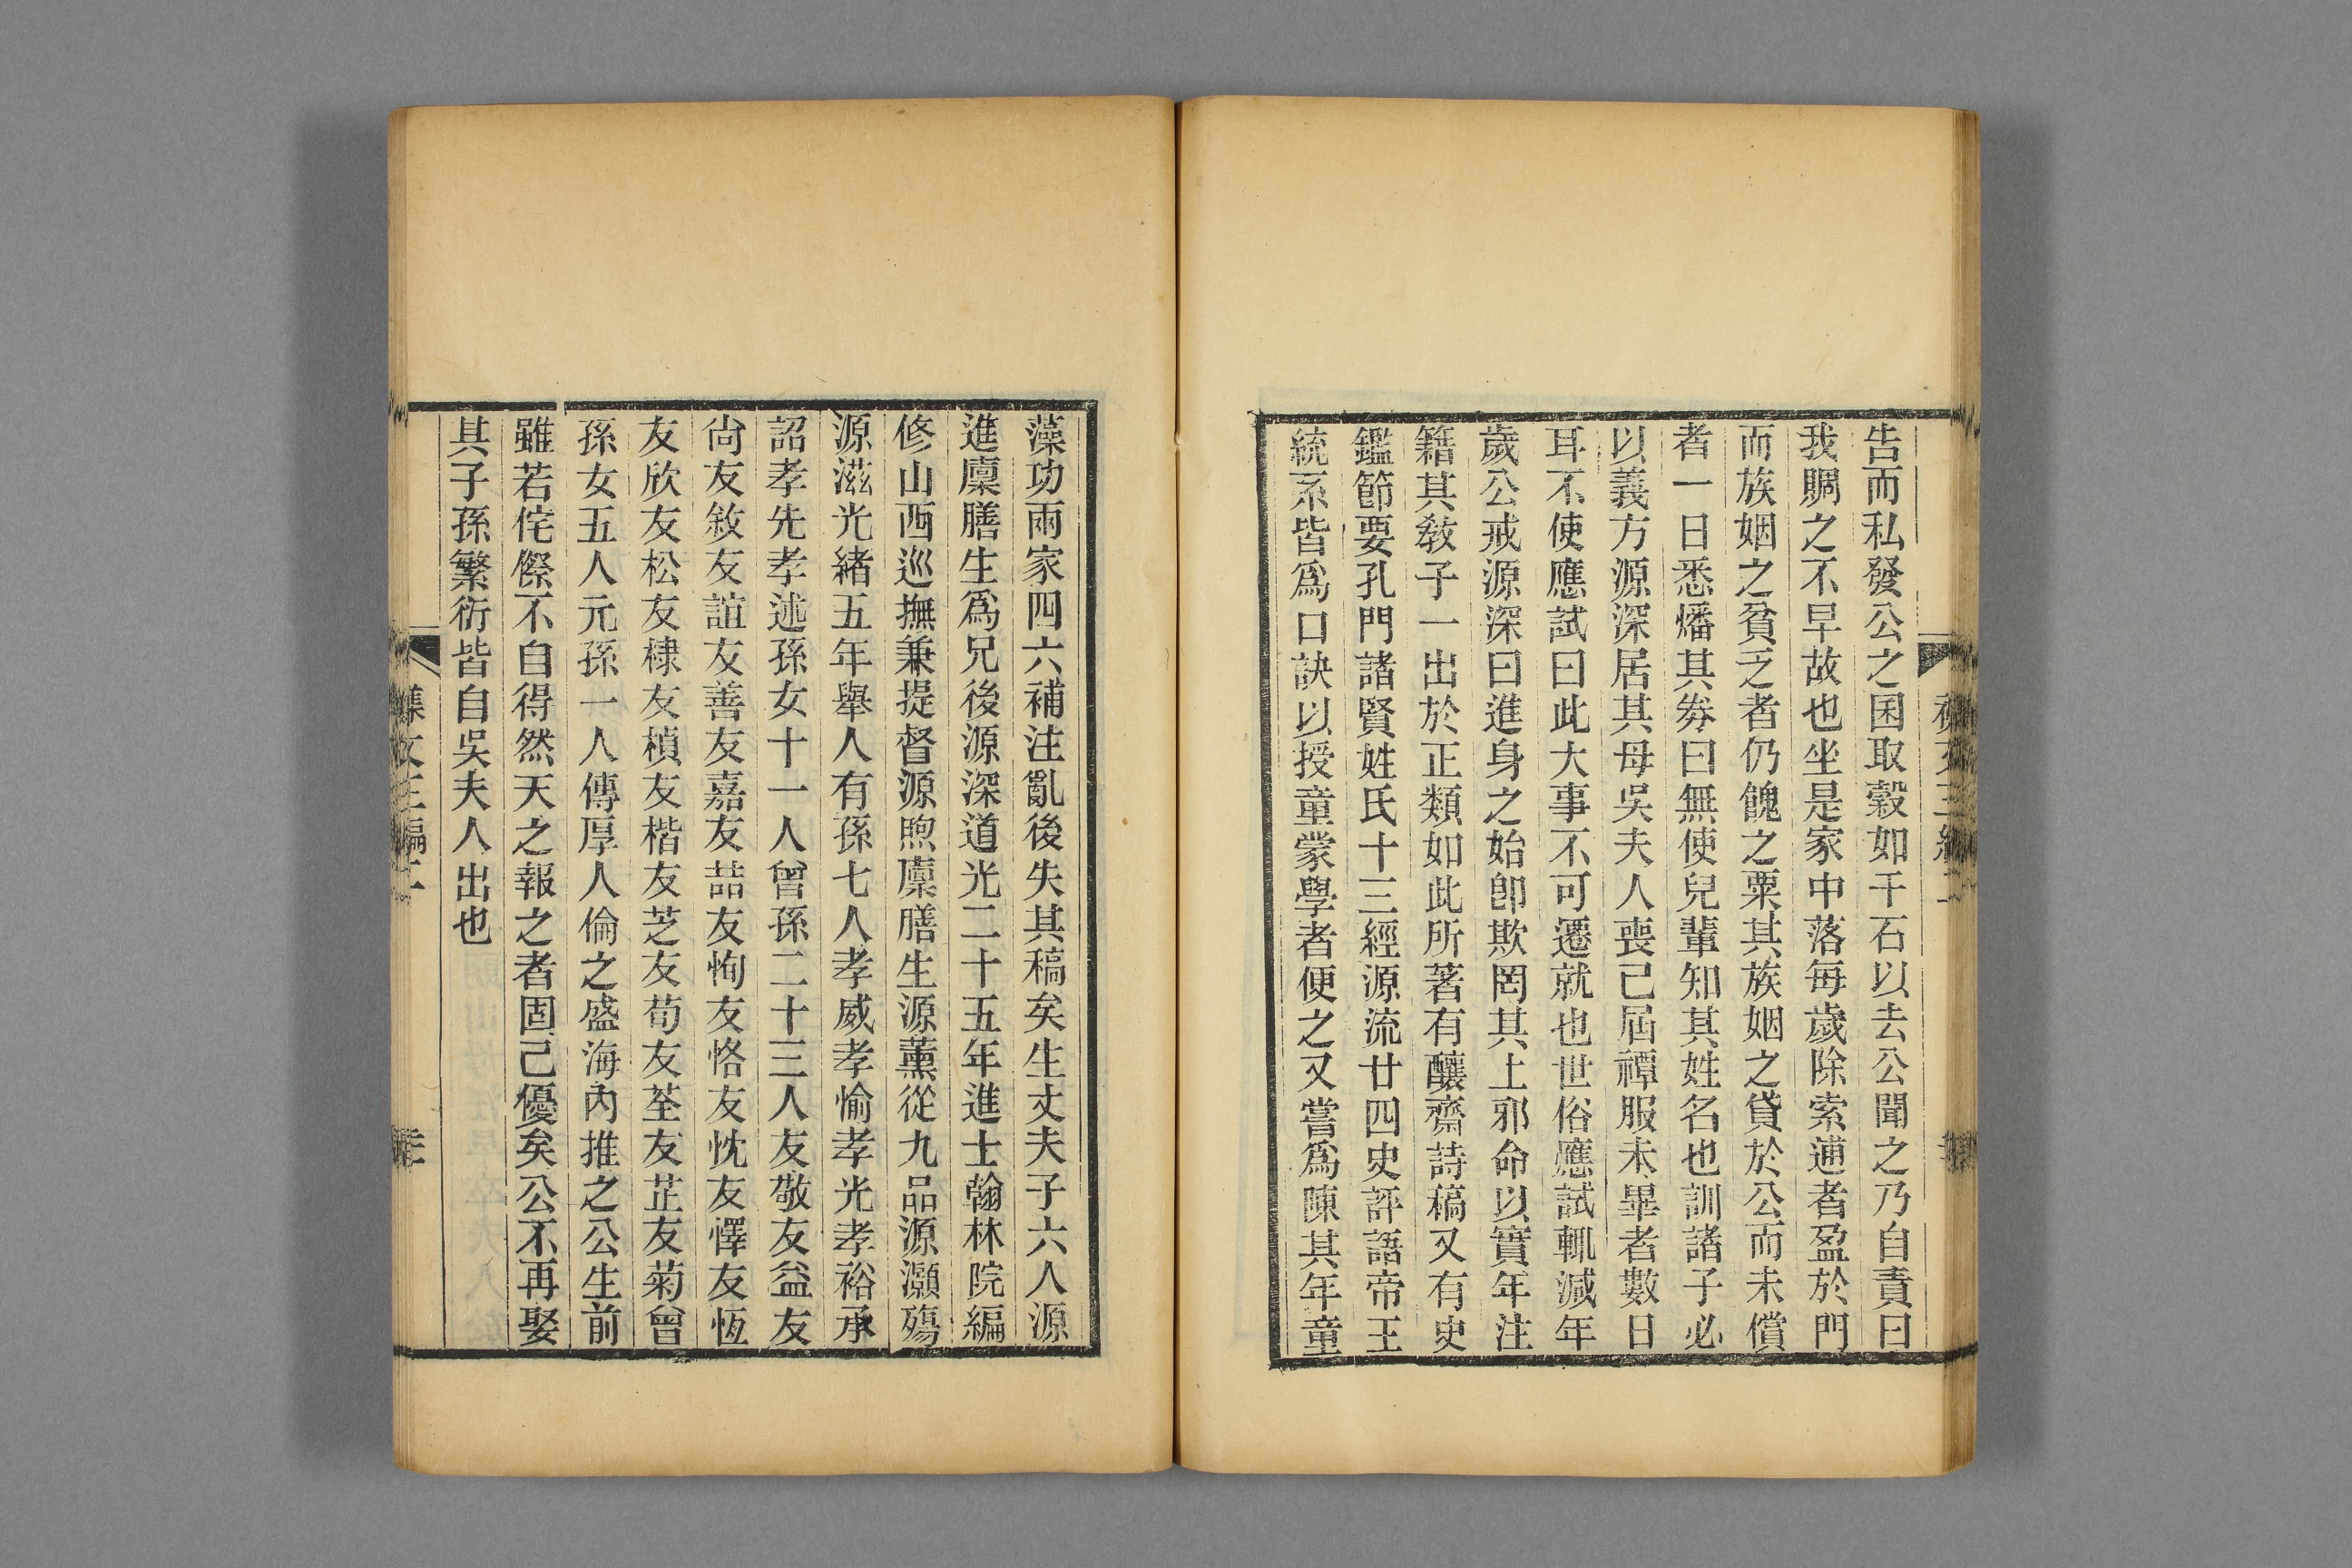 告而私發公之囷取穀如千石以去公聞之乃自責曰
我賙之不早故也坐是家中落每歲除索逋者盈於門
而族姻之貧乏者仍餽之粟其族姻之貸於公而未償
者一日悉燔其券曰無使兒輩知其姓名也訓諸子必
以義方源深居其母吳夫人喪已屆禫服未畢者數日
耳不使應試曰此大事不可遷就也世俗應試輒減年
歲公戒源深曰進身之始卽欺罔其上邪命以實年注
籍其敎子一出於正類如此所著有釀齋詩稿又有史
鑑節要孔門諸賢姓氏十三經源流廿四史評語帝王
統系皆爲口訣以授童蒙學者便之又嘗爲陳其年童
藻功兩家四六補注亂後失其稿矣生丈夫子六人源
進廩膳生爲兄後源深道光二十五年進士翰林院編
修山西巡撫兼提督源煦廩膳生源薰從九品源灝殤
源滋光緒五年舉人有孫七人孝威孝愉孝光孝裕承
詔孝先孝述孫女十一人曾孫二十三人友敬友益友
尙友敘友誼友善友嘉友喆友恂友恪友忱友懌友恆
友欣友松友棣友楨友楷友芝友荀友荃友芷友菊曾
孫女五人元孫一人傳厚人倫之盛海內推之公生前
雖若侘傺不自得然天之報之者固已優矣公不再娶
其子孫繁衍皆自吳夫人出也